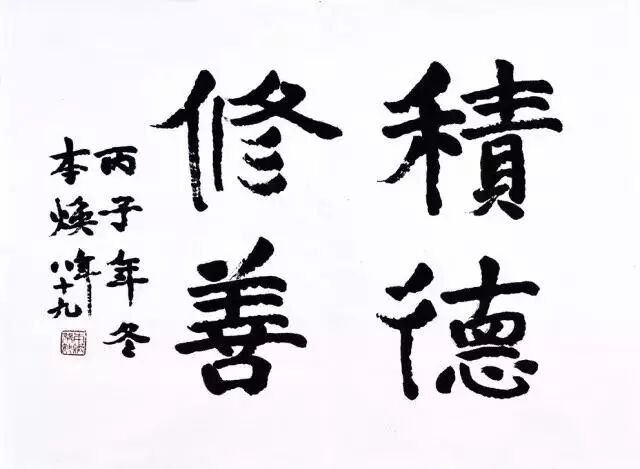 積德
修善
丙子年冬
李焕年八十九